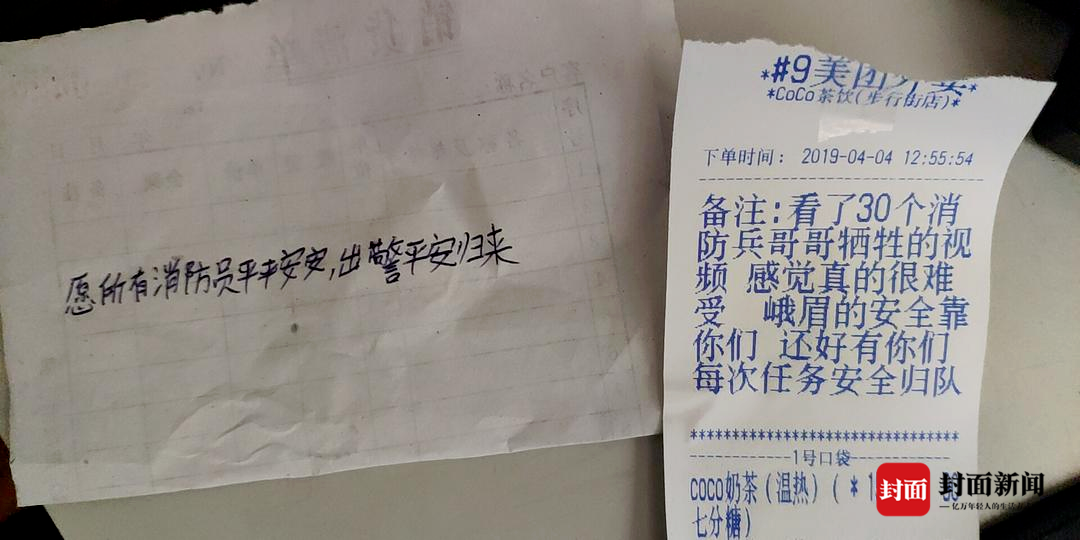 愿所有消防员平平安安,出警平安归来
*#9美团外卖*
*CoCo茶饮(步行街店)*
下单时间: 2019-04-04 12:55:54
备注:看了30个消
防兵哥哥牺牲的视
频 感觉真的很难
受 峨眉的安全靠
你们 还好有你们
每次任务安全归队
******************************
1号口袋
coco奶茶(温热)(*1
七分糖)
封面
封面新闻